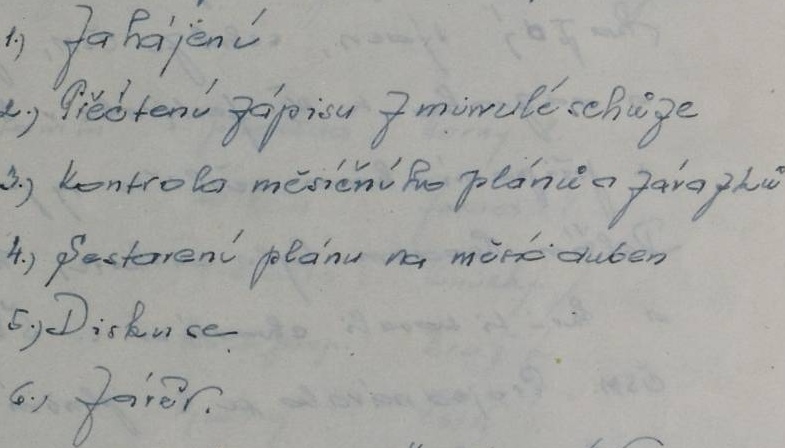 1.) Zahájení
2.) Přečtení zápisu z minulé schůze
3.) Kontrola měsíčního plánů a závazků
4.) Sestavení plánu na měsíc duben
5.) Diskuse
6.) Závěr.